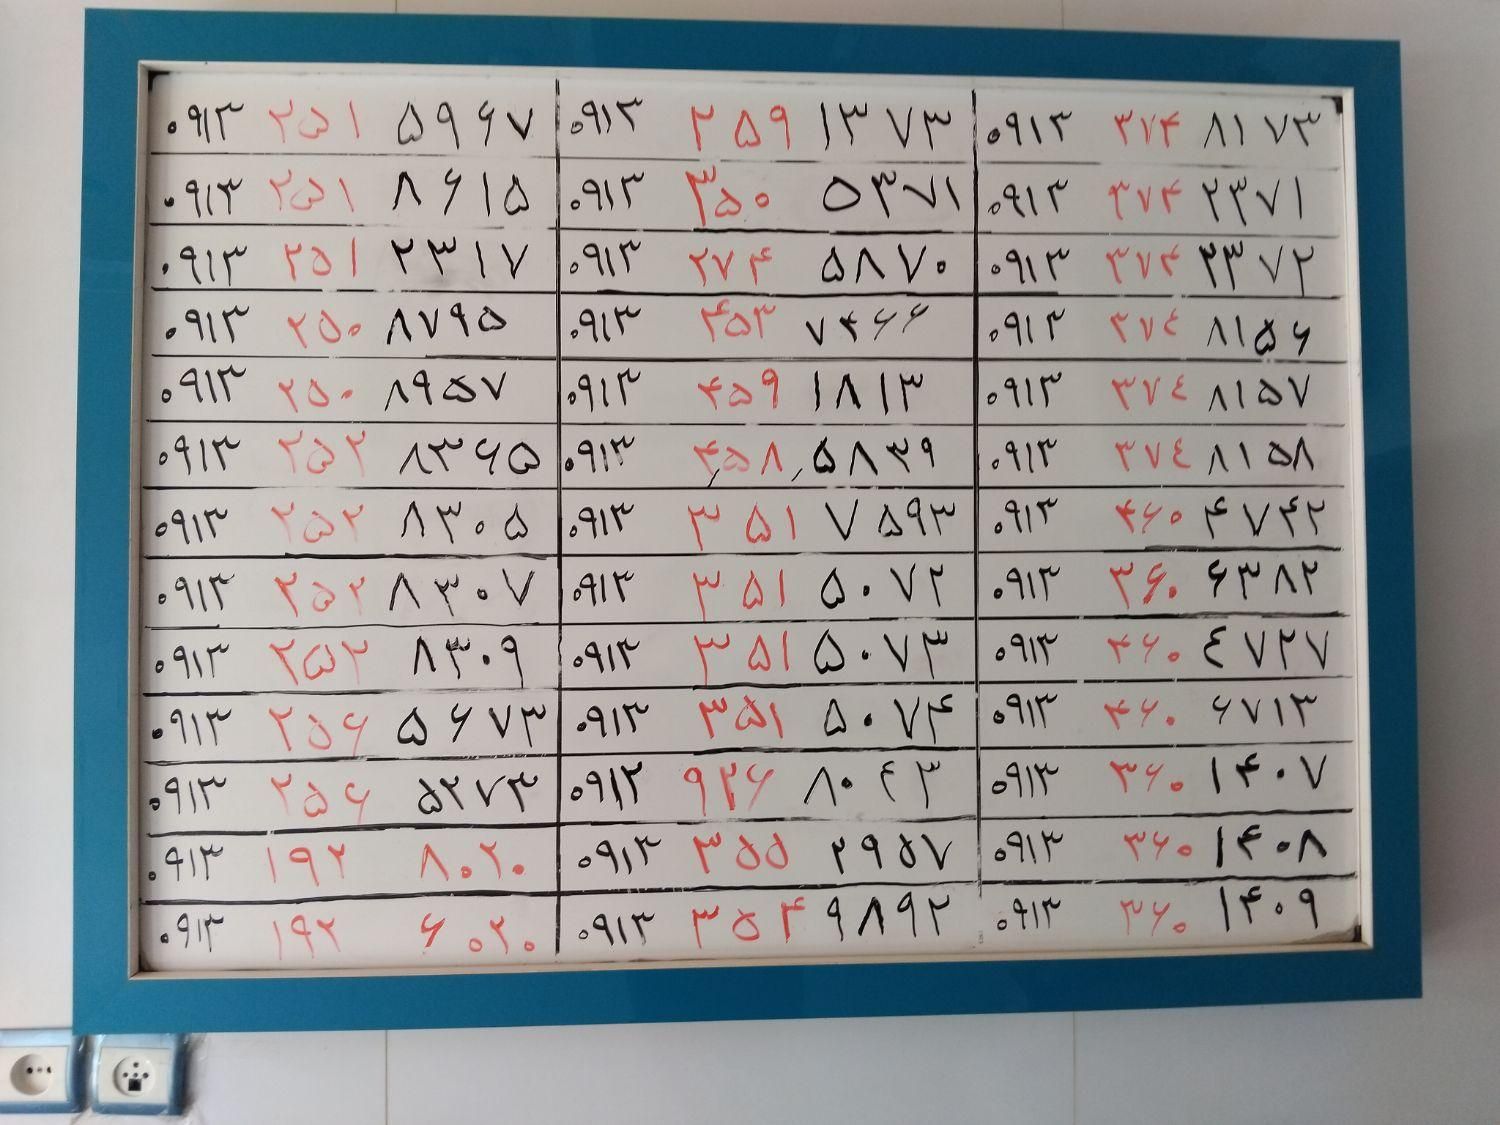 ۰۹۱۳ ۲۵۱ ۵۹۶۷ ۰۹۱۳ ۲۵۹ ۱۳۷۳ ۰۹۱۳ ۳۷۴ ۸۱۷۳
۰۹۱۳ ۲۵۱ ۸۶۱۵ ۰۹۱۳ ۳۵۰ ۵۳۷۱ ۰۹۱۳ ۳۷۴ ۲۳۷۱
۰۹۱۳ ۲۵۱ ۲۳۱۷ ۰۹۱۳ ۲۷۴ ۵۸۷۰ ۰۹۱۳ ۳۷۴ ۳۳۷۲
۰۹۱۳ ۲۵۰ ۸۷۹۵ ۰۹۱۳ ۴۵۳ ۷۴۶۶ ۰۹۱۳ ۳۷۴ ۸۱۵۶
۰۹۱۳ ۲۵۰ ۸۹۵۷ ۰۹۱۳ ۴۵۹ ۱۸۱۳ ۰۹۱۳ ۳۷۴ ۸۱۵۷
۰۹۱۳ ۲۵۲ ۸۳۶۵ ۰۹۱۳ ۴۵۸ ۵۸۳۹ ۰۹۱۳ ۳۷۴ ۸۱۵۸
۰۹۱۳ ۲۵۲ ۸۳۰۵ ۰۹۱۳ ۳۵۱ ۷۵۹۳ ۰۹۱۳ ۴۶۰ ۴۷۴۲
۰۹۱۳ ۲۵۲ ۸۳۰۷ ۰۹۱۳ ۳۵۱ ۵۰۷۲ ۰۹۱۳ ۳۶۰ ۶۳۸۲
۰۹۱۳ ۲۵۲ ۸۳۰۹ ۰۹۱۳ ۳۵۱ ۵۰۷۳ ۰۹۱۳ ۴۶۰ ۴۷۲۷
۰۹۱۳ ۲۵۶ ۵۶۷۳ ۰۹۱۳ ۳۵۱ ۵۰۷۴ ۰۹۱۳ ۴۶۰ ۶۷۱۳
۰۹۱۳ ۲۵۶ ۵۲۷۳ ۰۹۱۲ ۹۲۶ ۸۰۴۳ ۰۹۱۳ ۳۶۰ ۱۴۰۷
۰۹۱۳ ۱۹۲ ۸۰۲۰ ۰۹۱۳ ۳۵۵ ۲۹۵۷ ۰۹۱۳ ۳۶۰ ۱۴۰۸
۰۹۱۳ ۱۹۲ ۶۰۲۰ ۰۹۱۳ ۳۵۴ ۹۸۹۲ ۰۹۱۳ ۳۶۰ ۱۴۰۹